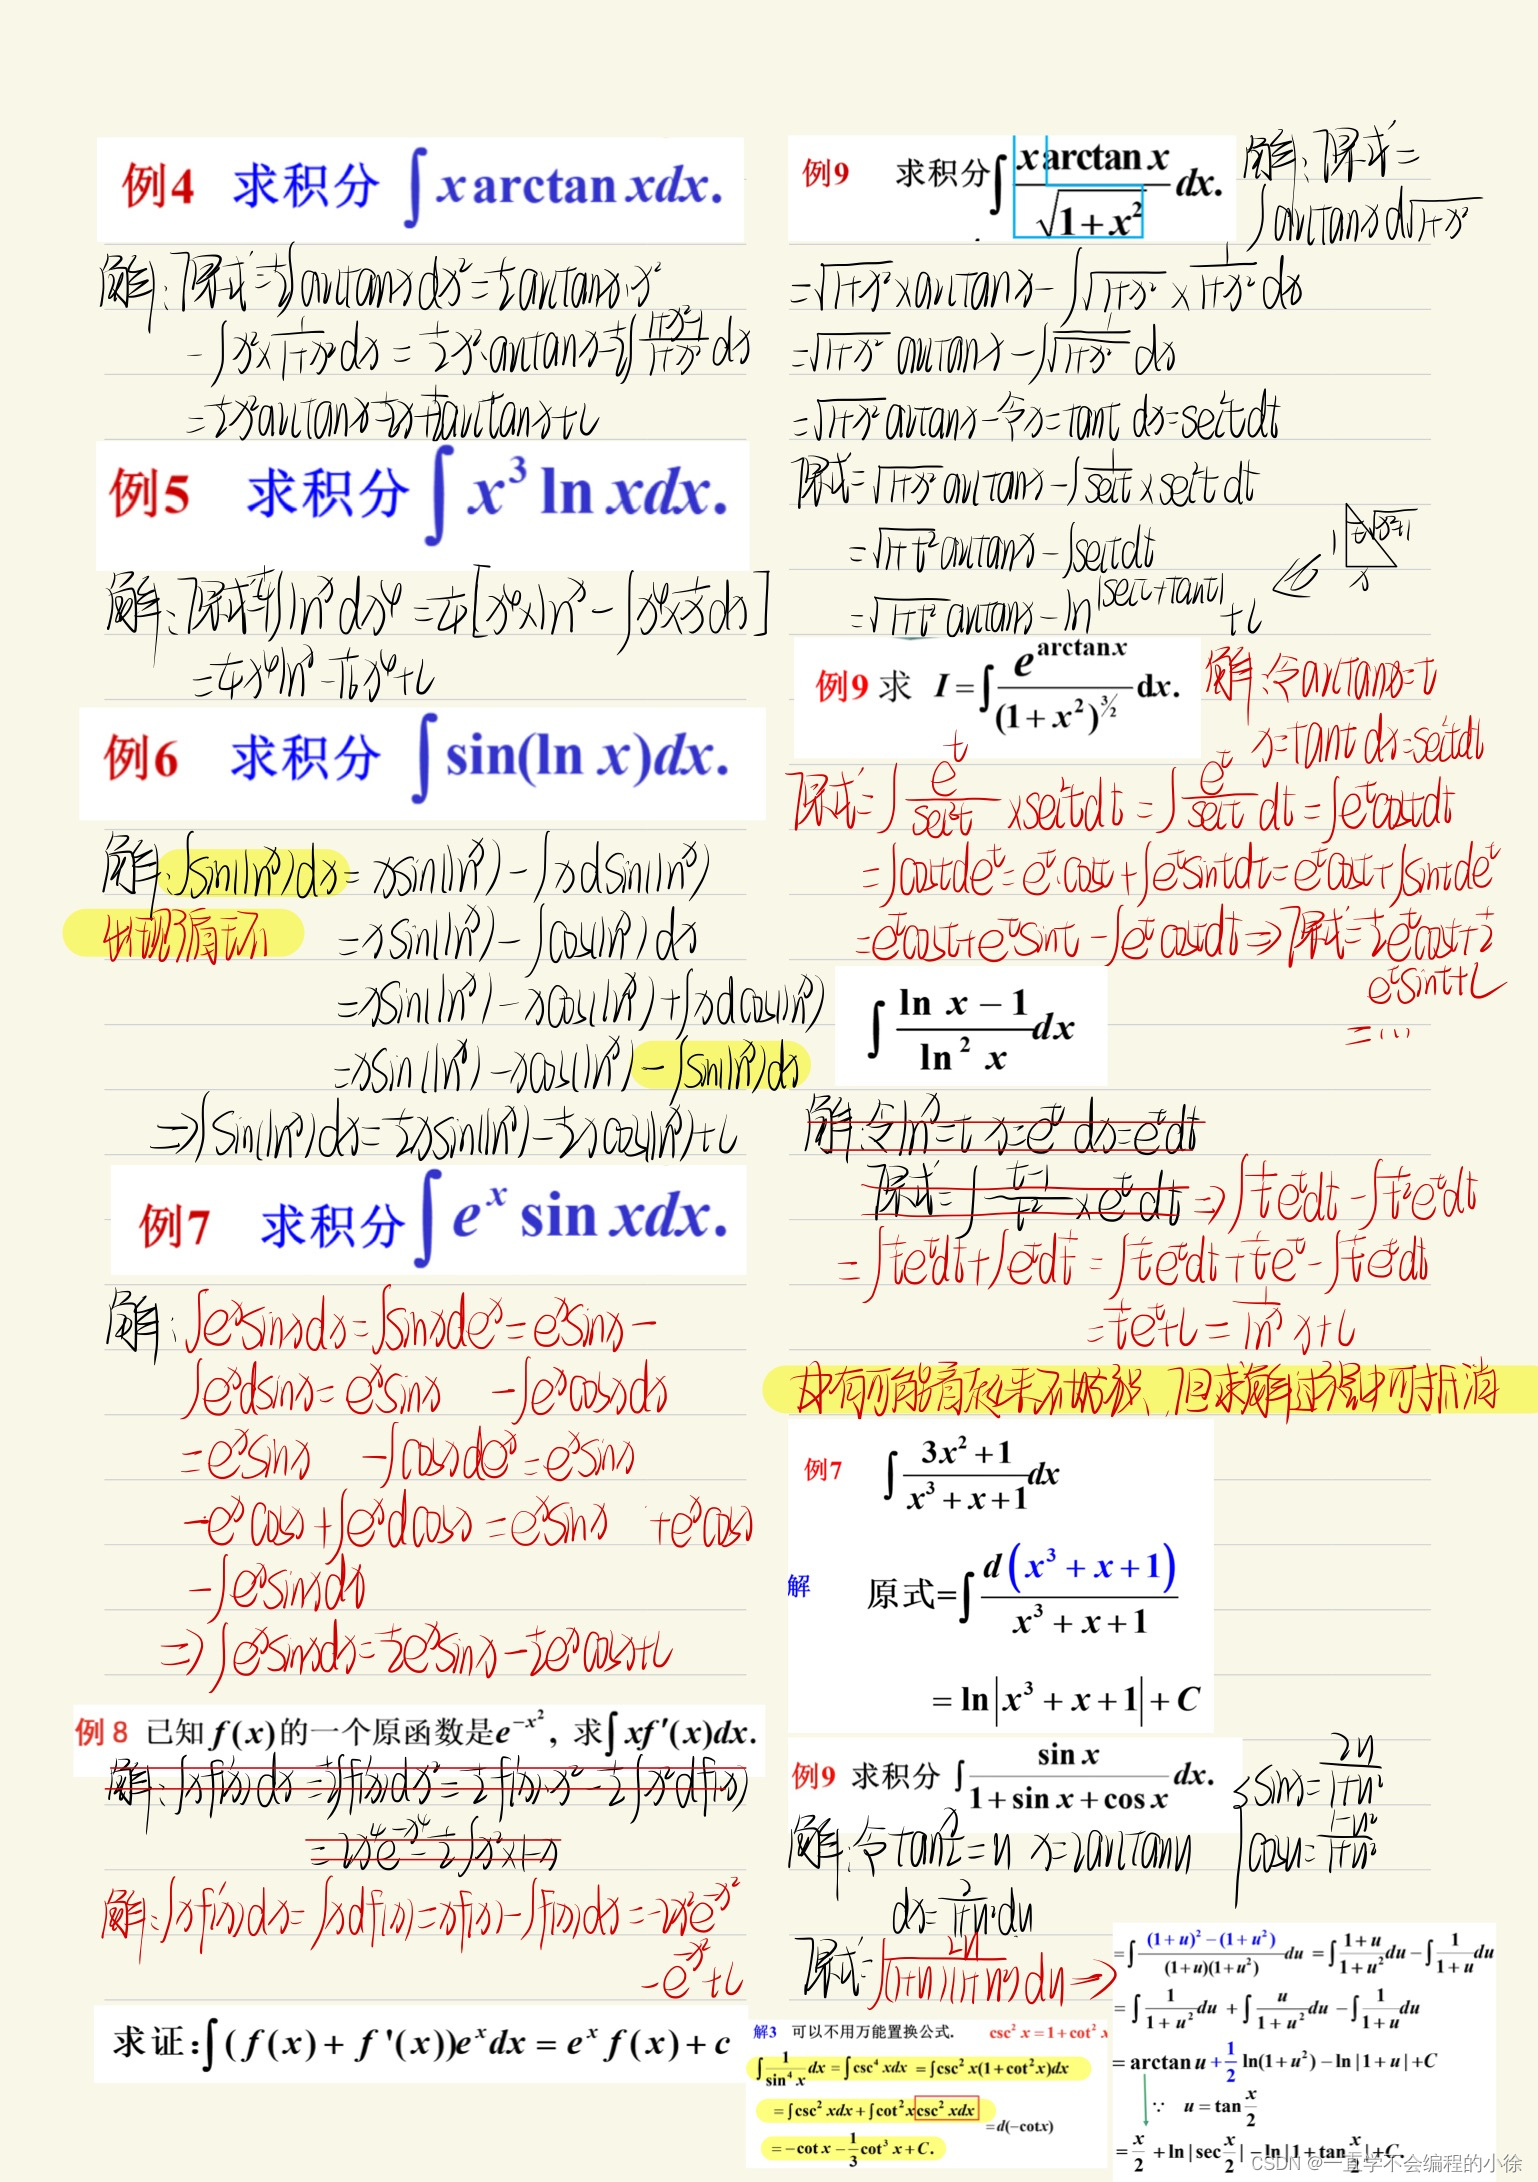 例4 求积分 ∫ x arctan xdx.
解:原式=½∫arctanx dx²=½arctanx·x²
-∫x²×1/(1+x²)dx = ½x²·arctanx-½∫(1+x²-1)/(1+x²)dx
=½x²arctanx-½x+½arctanx+C
例5 求积分 ∫ x³ ln xdx.
解:原式=¼∫lnx dx⁴ =¼[x⁴×lnx-∫x⁴×1/x dx]
=¼x⁴lnx-1/16x⁴+C
例6 求积分 ∫ sin(ln x)dx.
解:∫sin(lnx)dx=xsin(lnx)-∫xdsin(lnx)
出现了循环 =xsin(lnx)-∫cos(lnx)dx
=xsin(lnx)-xcos(lnx)+∫xdcos(lnx)
=xsin(lnx)-xcos(lnx)-∫sin(lnx)dx
⇒∫sin(lnx)dx=½xsin(lnx)-½xcos(lnx)+C
例7 求积分 ∫ eˣ sin xdx.
解:∫eˣsinxdx=∫sinxdeˣ=eˣsinx-
∫eˣdsinx=eˣsinx -∫eˣcosxdx
=eˣsinx -∫cosxdeˣ=eˣsinx
-eˣcosx+∫eˣdcosx=eˣsinx +eˣcosx
-∫eˣsinxdx
⇒∫eˣsinxdx=½eˣsinx-½eˣcosx+C
例 8 已知 f(x)的一个原函数是e^(-x²), 求∫xf′(x)dx.
解:∫xf′(x)dx=½∫f′(x)dx²=½f′(x)·x²-½∫x²df′(x)
解:∫xf′(x)dx=∫xdf(x)=xf(x)-∫f(x)dx=-2x²e^(-x²)
-e^(-x²)+C
求证:∫(f(x)+f'(x))eˣdx = eˣf(x)+c
例9 求积分∫ x arctan x/√(1+x²) dx.
解:原式=
∫arctanxd√(1+x²)
=√(1+x²)×arctanx-∫√(1+x²)×1/(1+x²)dx
=√(1+x²) arctanx-∫1/√(1+x²) dx
=√(1+x²)arctanx-令x=tant dx=sec²tdt
原式=√(1+x²)arctanx-∫1/sect×sec²tdt
=√(1+t²)arctanx-∫sectdt
=√(1+t²)arctanx-ln|sect+tant|+C
1 t √(x²+1)
x
例9 求 I=∫ e^(arctanx)/(1+x²)^(3/2) dx.
解:令arctanx=t
x=tant dx=sec²tdt
原式=∫e^t/sec³t×sec²tdt=∫e^t/sect dt=∫e^t costdt
=∫costde^t=e^t·cost+∫e^t sintdt=e^t cost+∫sintde^t
=e^t cost+e^t sint-∫e^t costdt⇒原式=½e^t cost+½
e^t sint+C
=...
∫ (ln x-1)/ln² x dx
解:令lnx=t x=e^t dx=e^t dt
原式=∫(t-1)/t²×e^t dt⇒∫1/t e^t dt-∫1/t² e^t dt
=∫1/t e^t dt+∫e^t d1/t=∫1/t e^t dt+1/t e^t-∫1/t e^t dt
=1/t e^t+C=1/lnx x+C
也有可能看起来不好积,但求解过程中可抵消
例7 ∫ (3x²+1)/(x³+x+1) dx
解 原式=∫ d(x³+x+1)/(x³+x+1)
=ln|x³+x+1|+C
例9 求积分 ∫ sin x/(1+sin x+cos x) dx.
sinx=2u/(1+u²)
cosu=(1-u²)/(1+u²)
解:令tan x/2=u x=2arctanu
dx=2/(1+u²)du
原式=∫2u/((1+u)(1+u²))du⇒
=∫ ((1+u)²-(1+u²))/((1+u)(1+u²)) du =∫ (1+u)/(1+u²) du-∫ 1/(1+u) du
=∫ 1/(1+u²) du +∫ u/(1+u²) du -∫ 1/(1+u) du
=arctan u+½ ln(1+u²)-ln|1+u|+C
∵ u=tan x/2
=x/2 +ln|sec x/2|-ln|1+tan x/2|+C.
解3 可以不用万能置换公式. csc² x=1+cot² x
∫ 1/sin⁴ x dx =∫csc⁴ xdx =∫csc² x(1+cot² x)dx
=∫csc² xdx+∫cot² x csc² xdx
=d(-cotx)
=-cot x-1/3 cot³ x+C.
CSDN @一直学不会编程的小徐